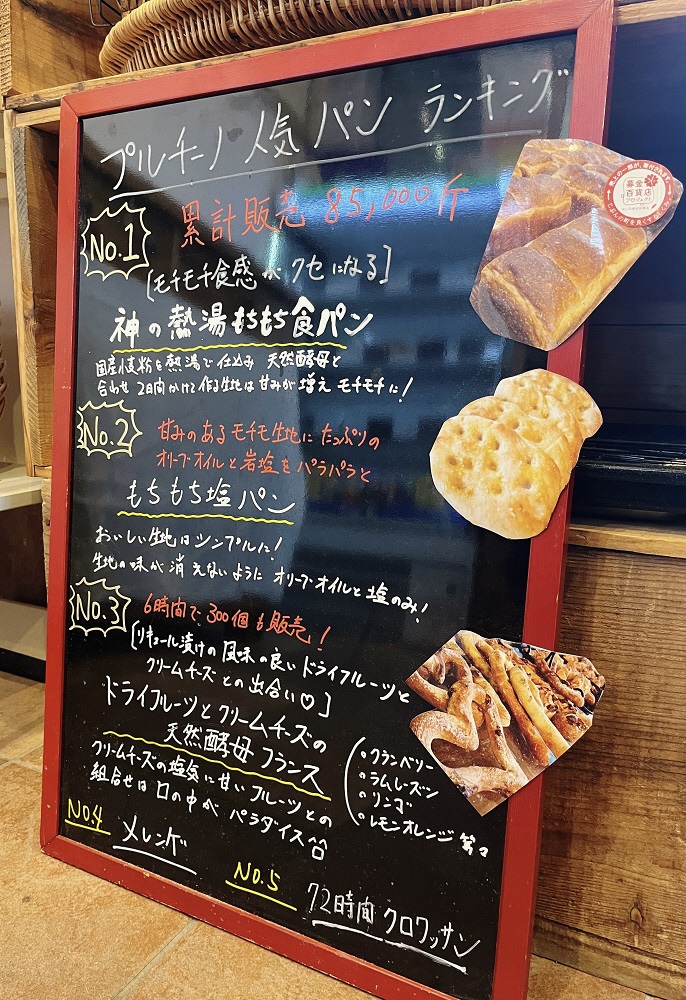 プルチーノ 人気 パン ランキング
累計販売 85,000斤
No.1
[モチモチ食感が クセになる]
神の熱湯もちもち食パン
国産小麦粉を熱湯で仕込み 天然酵母と
合わせ 2日間かけて作る生地は甘みが増え モチモチに!
No.2
甘みのあるモチモ生地に たっぷりの
オリーブオイルと岩塩を パラパラと
もちもち塩パン
おいしい生地はシンプルに!
生地の味が消えないように オリーブオイルと塩のみ!
No.3
6時間で300個も販売!
[リキュール漬けの風味の良いドライフルーツと
クリームチーズとの出合い♡]
ドライフルーツとクリームチーズの
天然酵母フランス
クリームチーズの塩気に甘いフルーツとの
組合せは口の中がパラダイス
クランベリー
ラムレーズン
リンゴ
レモンオレンジ 等々
No.4
メレンゲ
No.5
72時間クロワッサン
募金
百貨店
プロジェクト